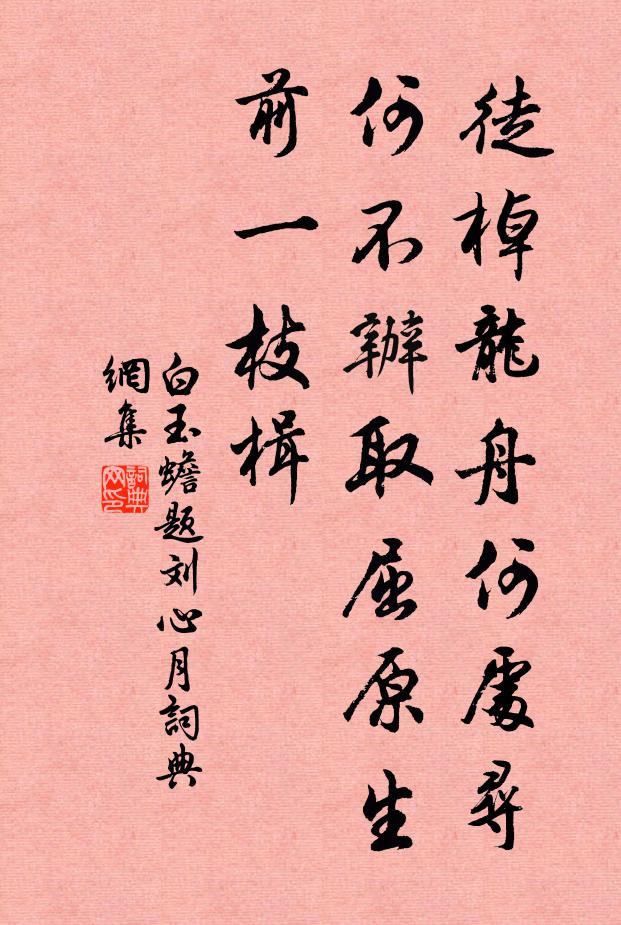 徒棹龍舟何處尋
何不辦取屈原生
前一枝楫
白玉蟾题刘心月詞典
網集
詞典網印